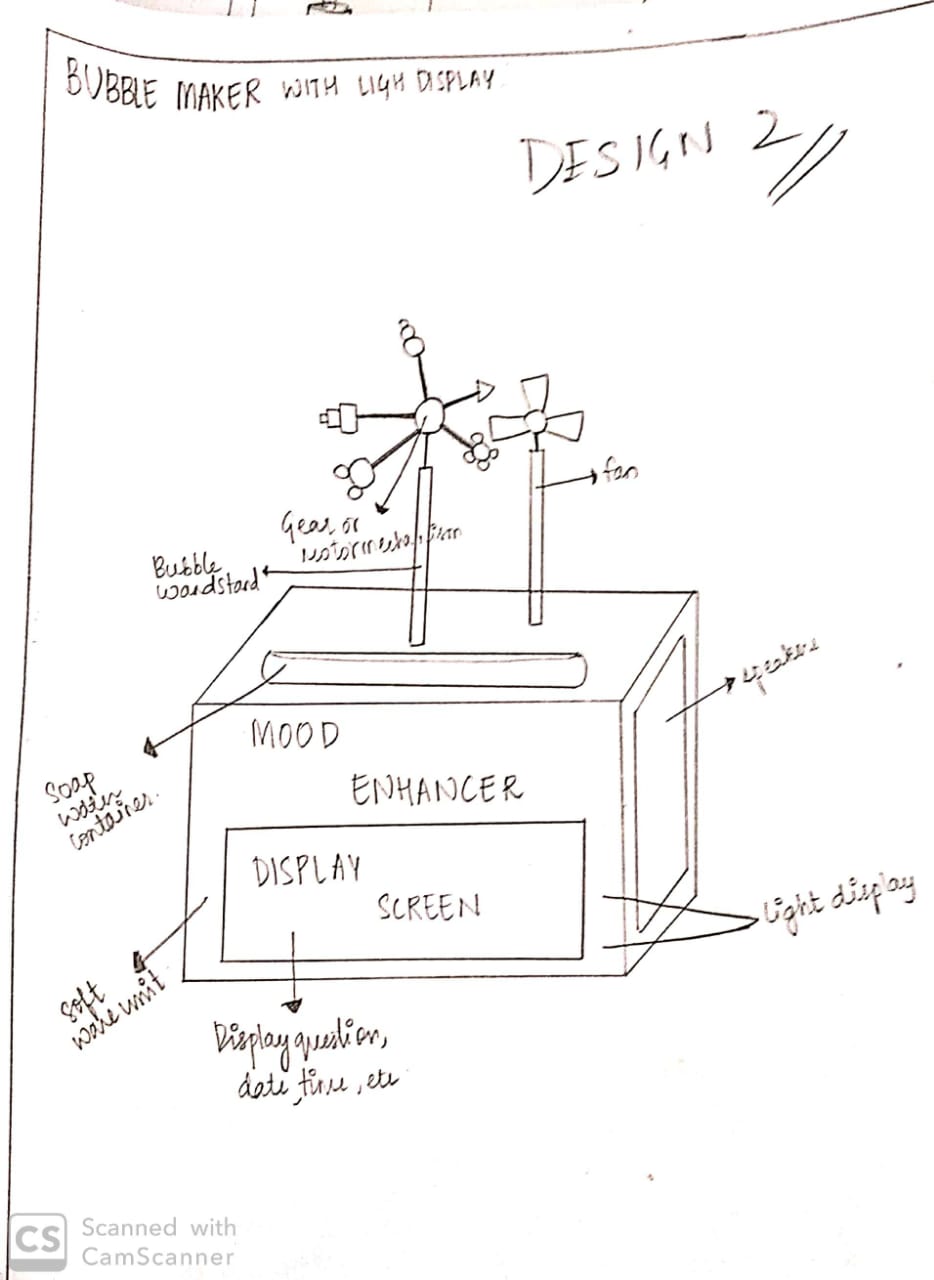 BUBBLE MAKER WITH LIGH DISPLAY
DESIGN 2
fan
Gear or
Motor mechanism
Bubble
wand stand
speakers
MOOD
ENHANCER
Soap
water
container.
DISPLAY
SCREEN
light display
Soft
ware unit
Display question,
date, time, etc
CS
Scanned with
CamScanner